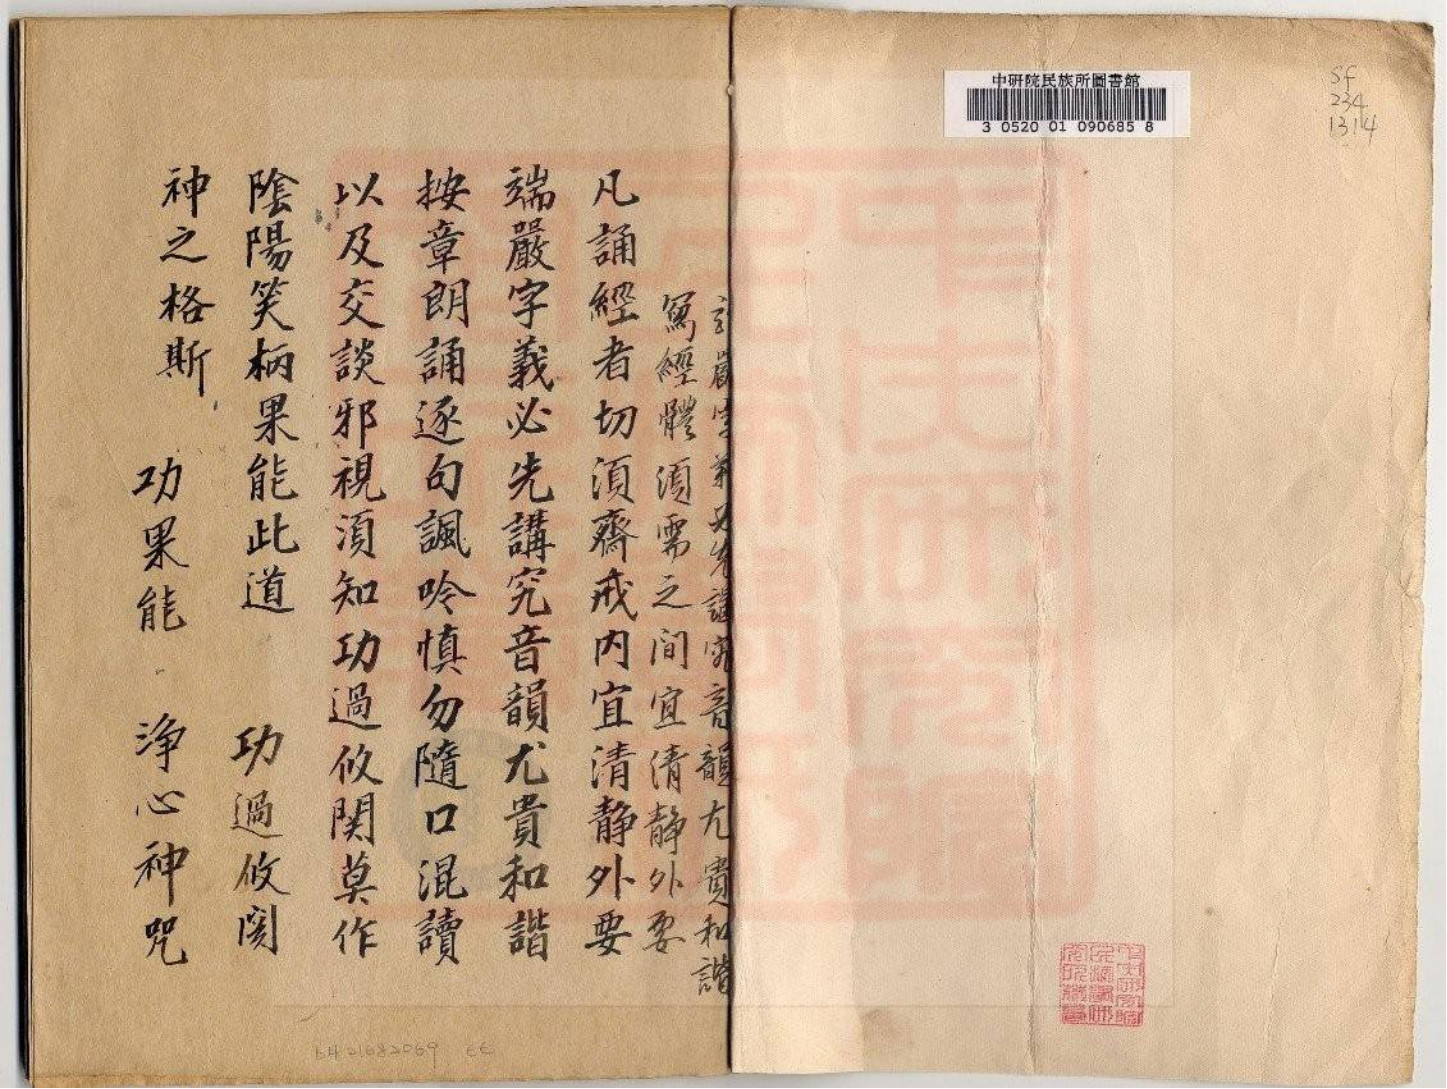 中研院民族所圖書館
3 0520 01 090685 8
Sf
234
1314
嚴字義必先講究音韻尤貴和諧
寫經體須需之间宜清静外要
凡誦經者切須齋戒内宜清静外要
端嚴字義必先講究音韻尤貴和諧
按章朗誦逐句諷吟慎勿隨口混讀
以及交談邪視須知功過攸関莫作
陰陽笑柄果能此道 功過攸関
神之格斯 功果能 净心神咒